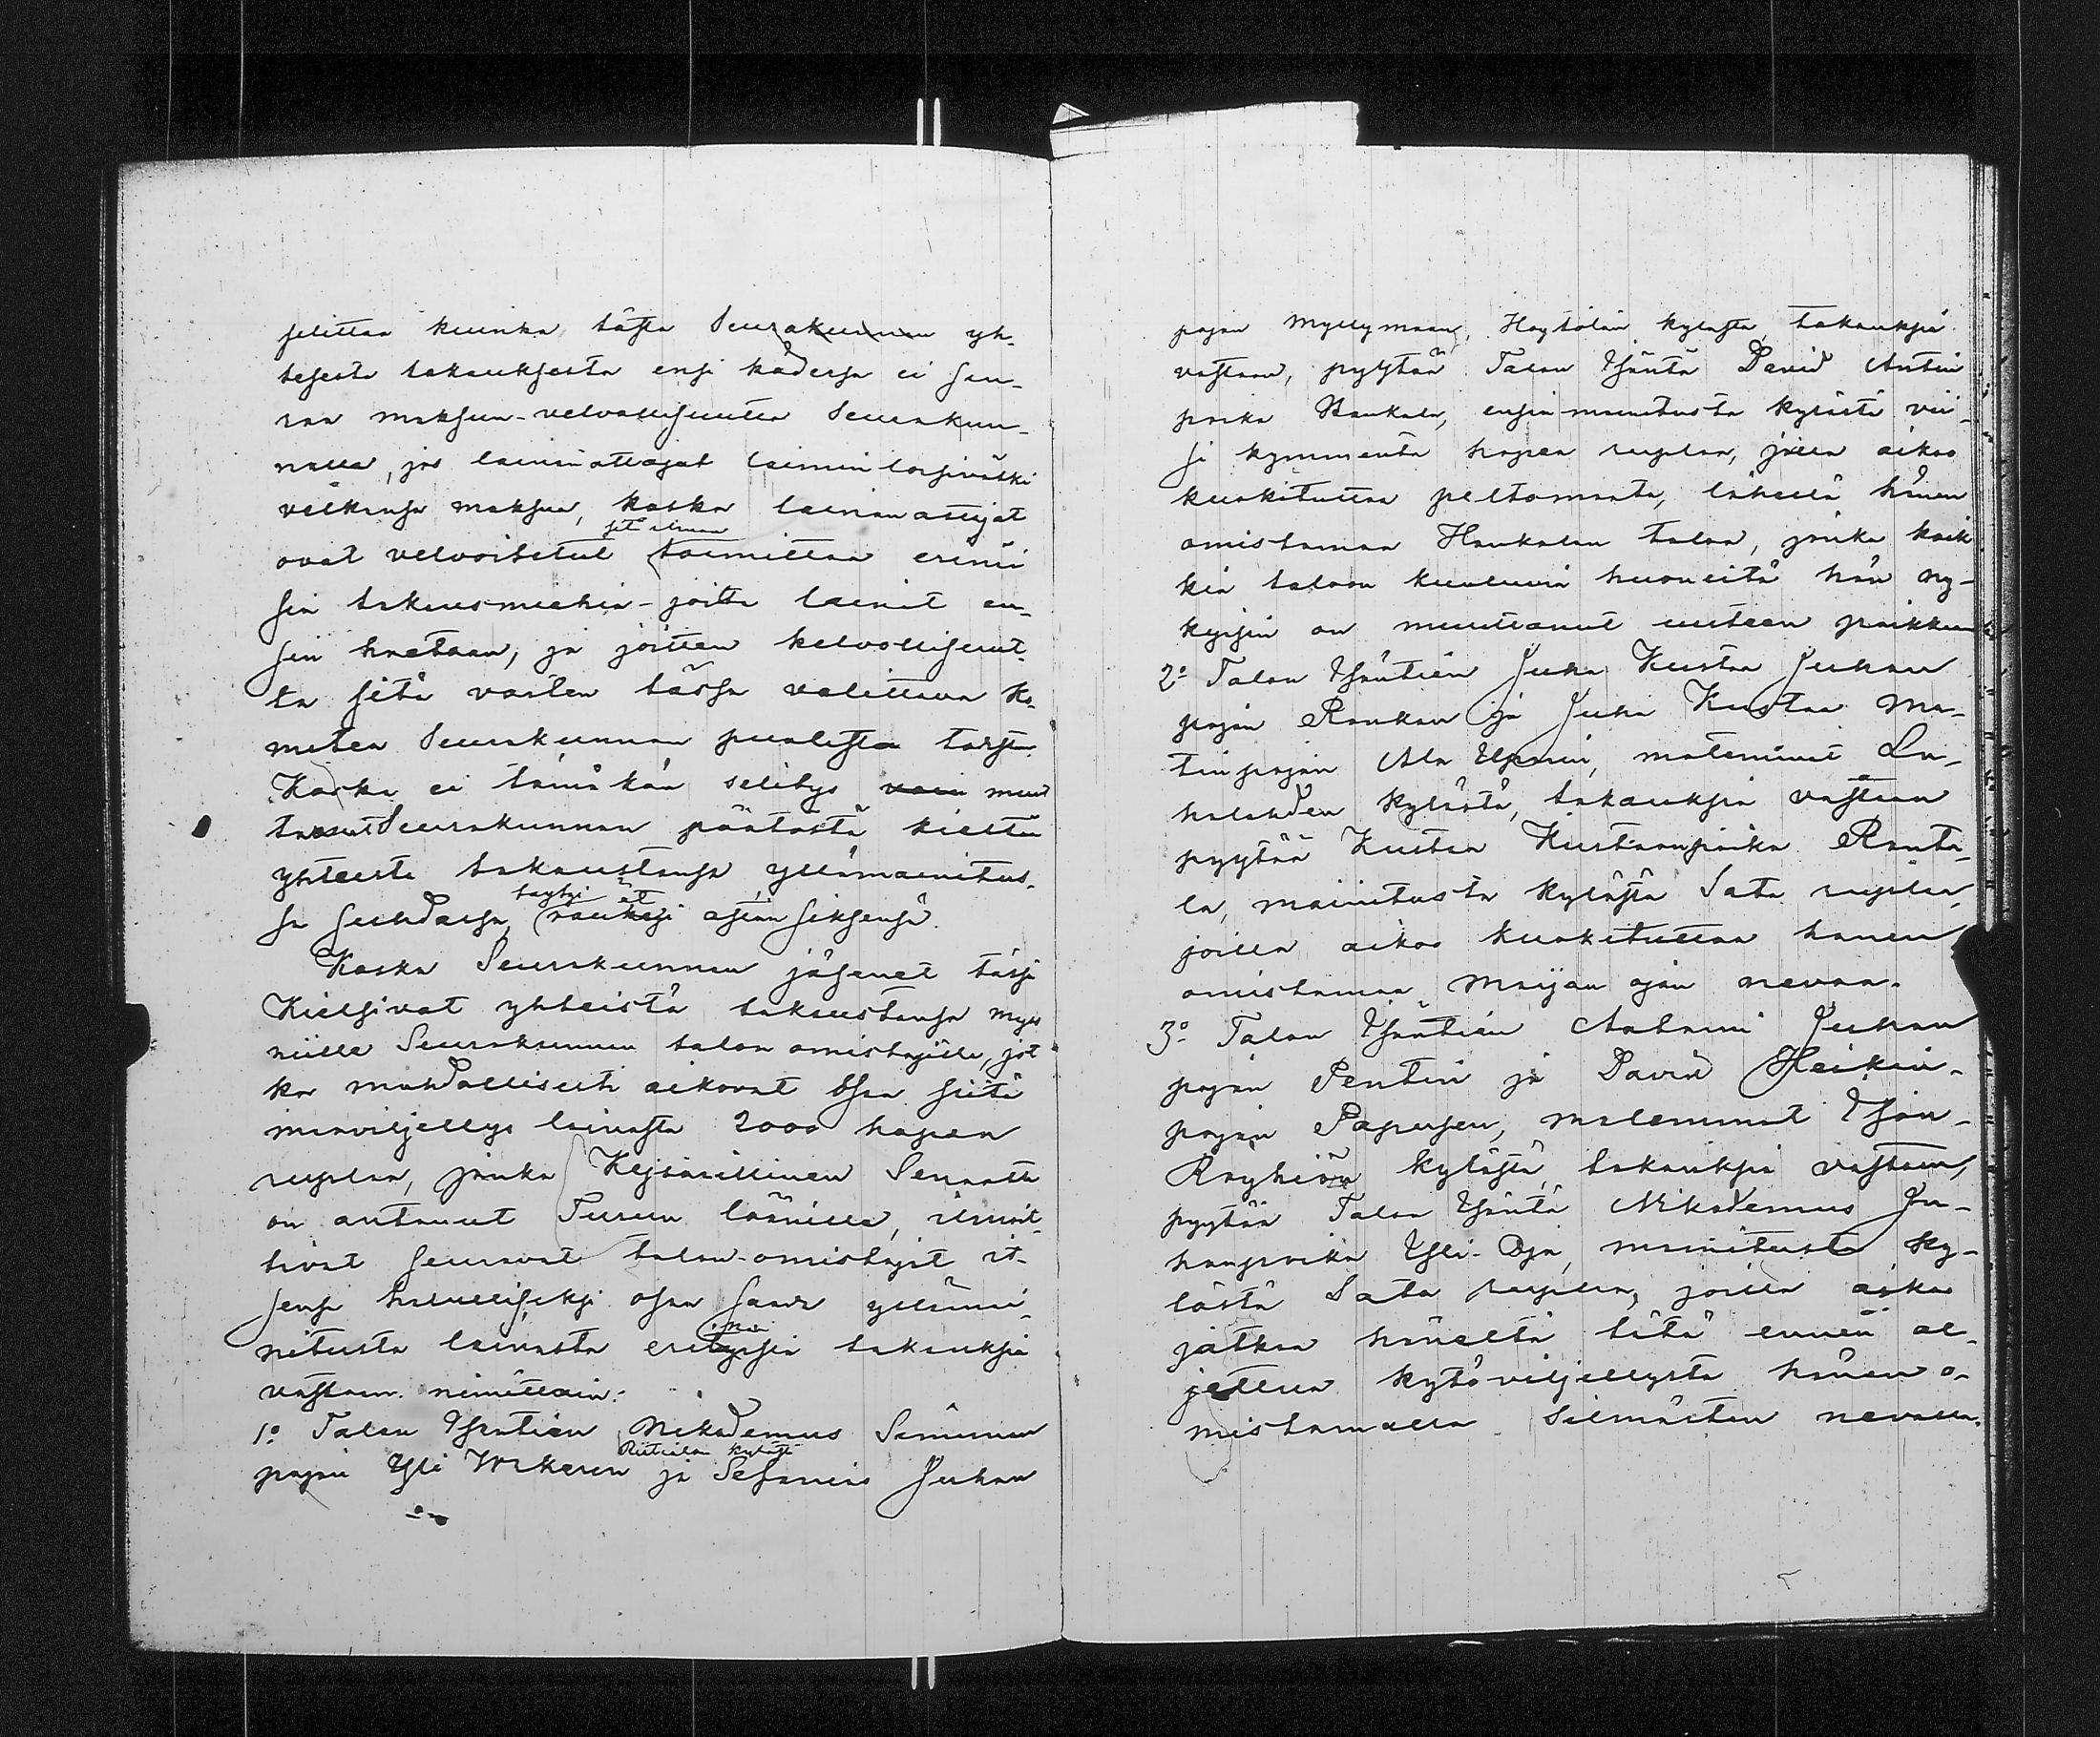 selittaa kuinka tästa Seurakunnan yh-
teisesta takauksesta ensi kädessa ei seu-
raa maksun-velvollisuutta Seurakun-
nalla, jos lainanottajat laiminlöisivätki
velkansa maksua, koska lainan ottajat
ovat velvoitetut sitä ilman toimittaa erinäi
siä takuusmiehiä - joilta lainat en-
sin haetaan, ja joitten kelvollisuut-
ta sitä varten tässa valittava ko-
mitea Seurakunnan puolesta tarkastaa.
Koska ei tämäkän selitys vain muut
tanut Seurakunnan päätöstä kieltä
yhteista takaustansa yllämainitus-
sa suhdassa, täytyi raueta asian siksensä.
Koska Seurakunnan jäsenet täsi
Kielsivat yhteistä takaustansa myös
niille Seurakunnan talon omistajille, jot
ka mahdollisesti aikovat osaa siitä
maaviljellys lainasta 2000 hopea
ruplaa, jonka Kejsarillinen Senaatti
on antanut Turun läänille, ilmoit-
tivat seuraavat talon-omistajat it-
sensa halullisiksi osaa saada yllämai-
nitusta lainasta erinäisia takauksia
vastaan. nimittäin:
1:o Talon Isäntien Nikodemus Simunan
pojan Yli Wakerin Riitialan kylästä ja Sefanias Juhan
pojan Myllymaan, Haytölän kylästa, takauksia
vastaan, pyytää Talon Isäntä David Antin
poika Haukala, ensin mainitusta kylästä vii-
si kymmentä hopea ruplaa, joilla aikoo
kuokituttaa peltomaata, lähellä hänen
omistamaa Haukalan taloa, jonka kaik
kia taloon kuuluvia huoneita hän ny-
kyisin on muuttanut uuteen paikkaan
2:o Talon Isäntien Juha Kustaa Juhan
pojan Raukan ja Juha Kustaa Ma-
tinpojan Ala Ussin, molemmat La-
halahden kylästä, takauksia vastaan
pyytää Kustaa Kustaanpoika Ranta-
la, mainitusta kylästa Sata ruplaa,
joilla aikoo kuokituttaa hanen
omistamaa Maijan ojan nevaa.
3:o Talon Isäntien Aatami Juhan
pojan Pentin ja David Heikin-
pojan Papusen, molemmat Ison-
Röyhiön kylästä, takauksia vastaan,
pyytää Talon Isäntä Nikodemus Ju-
hanpoika Yli-Oja, mainitusta ky-
lästä Sata ruplaa, joilla aikoo
jatkaa häneltä tätä ennen al-
jettua kytöviljellysta hänen o-
mistamalla Silmästen nevalla.